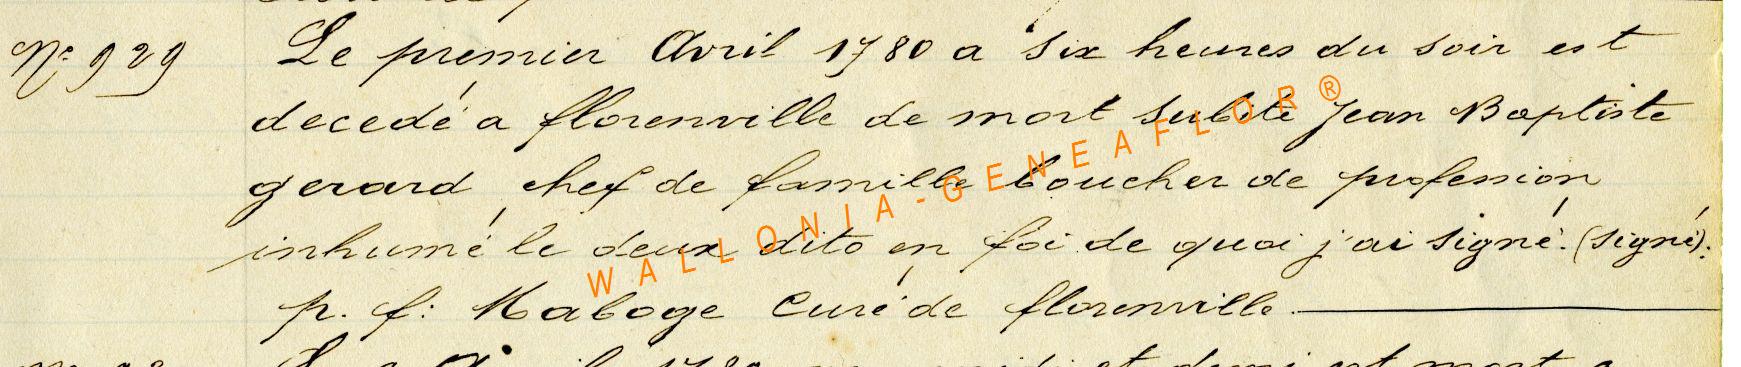 N° 929
Le premier Avril 1780 a six heures du soir est
decedé a florenville de mort subite Jean Baptiste
gerard chef de famille boucher de profession
inhumé le deux dito en foi de quoi j'ai signé. (signé):
p. f: Maboge Curé de florenville.
WALLONIA-GENEAFLOR®